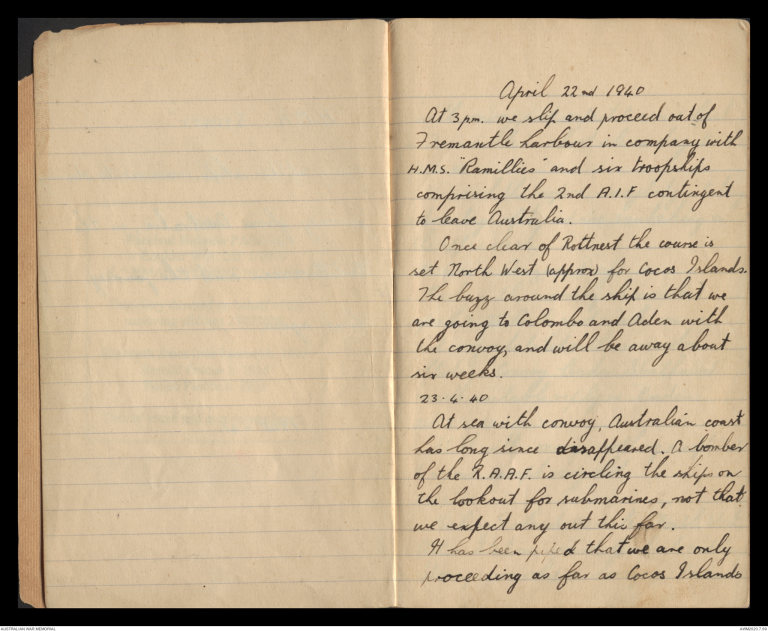 April 22nd 1940
At 3 pm. we slip and proceed out of
Fremantle harbour in company with
H.M.S. "Ramillies" and six troopships
comprising the 2nd A.I.F contingent
to leave Australia.
Once clear of Rottnest the course is
set North West (approx) for Cocos Islands.
The buzz around the ship is that we
are going to Colombo and Aden with
the convoy, and will be away about
six weeks.
23.4.40
At sea with convoy, Australian coast
has long since disappeared. A bomber
of the R.A.A.F. is circling the ships on
the lookout for submarines, not that
we expect any out this far.
It has been piped that we are only
proceeding as far as Cocos Islands
AUSTRALIAN WAR MEMORIAL